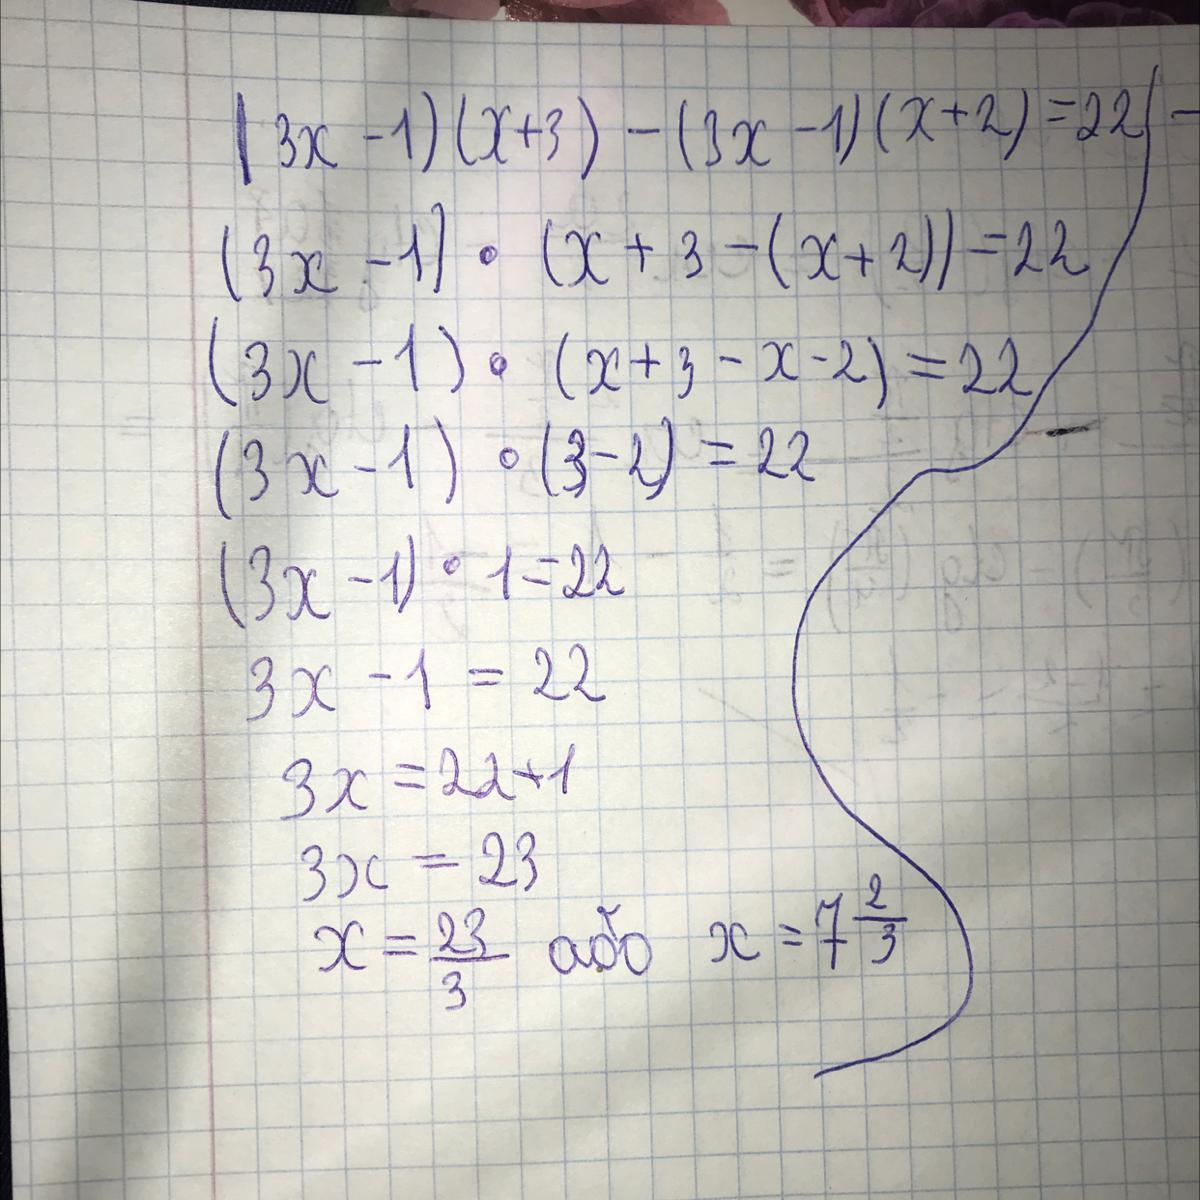 (3x - 1)(x+3) - (3x - 1)(x+2) = 22
(3x - 1) • (x + 3 - (x + 2)) = 22
(3x - 1) • (x + 3 - x - 2) = 22
(3x - 1) • (3 - 2) = 22
(3x - 1) • 1 = 22
3x - 1 = 22
3x = 22 + 1
3x = 23
x = 23/3 або x = 7 2/3